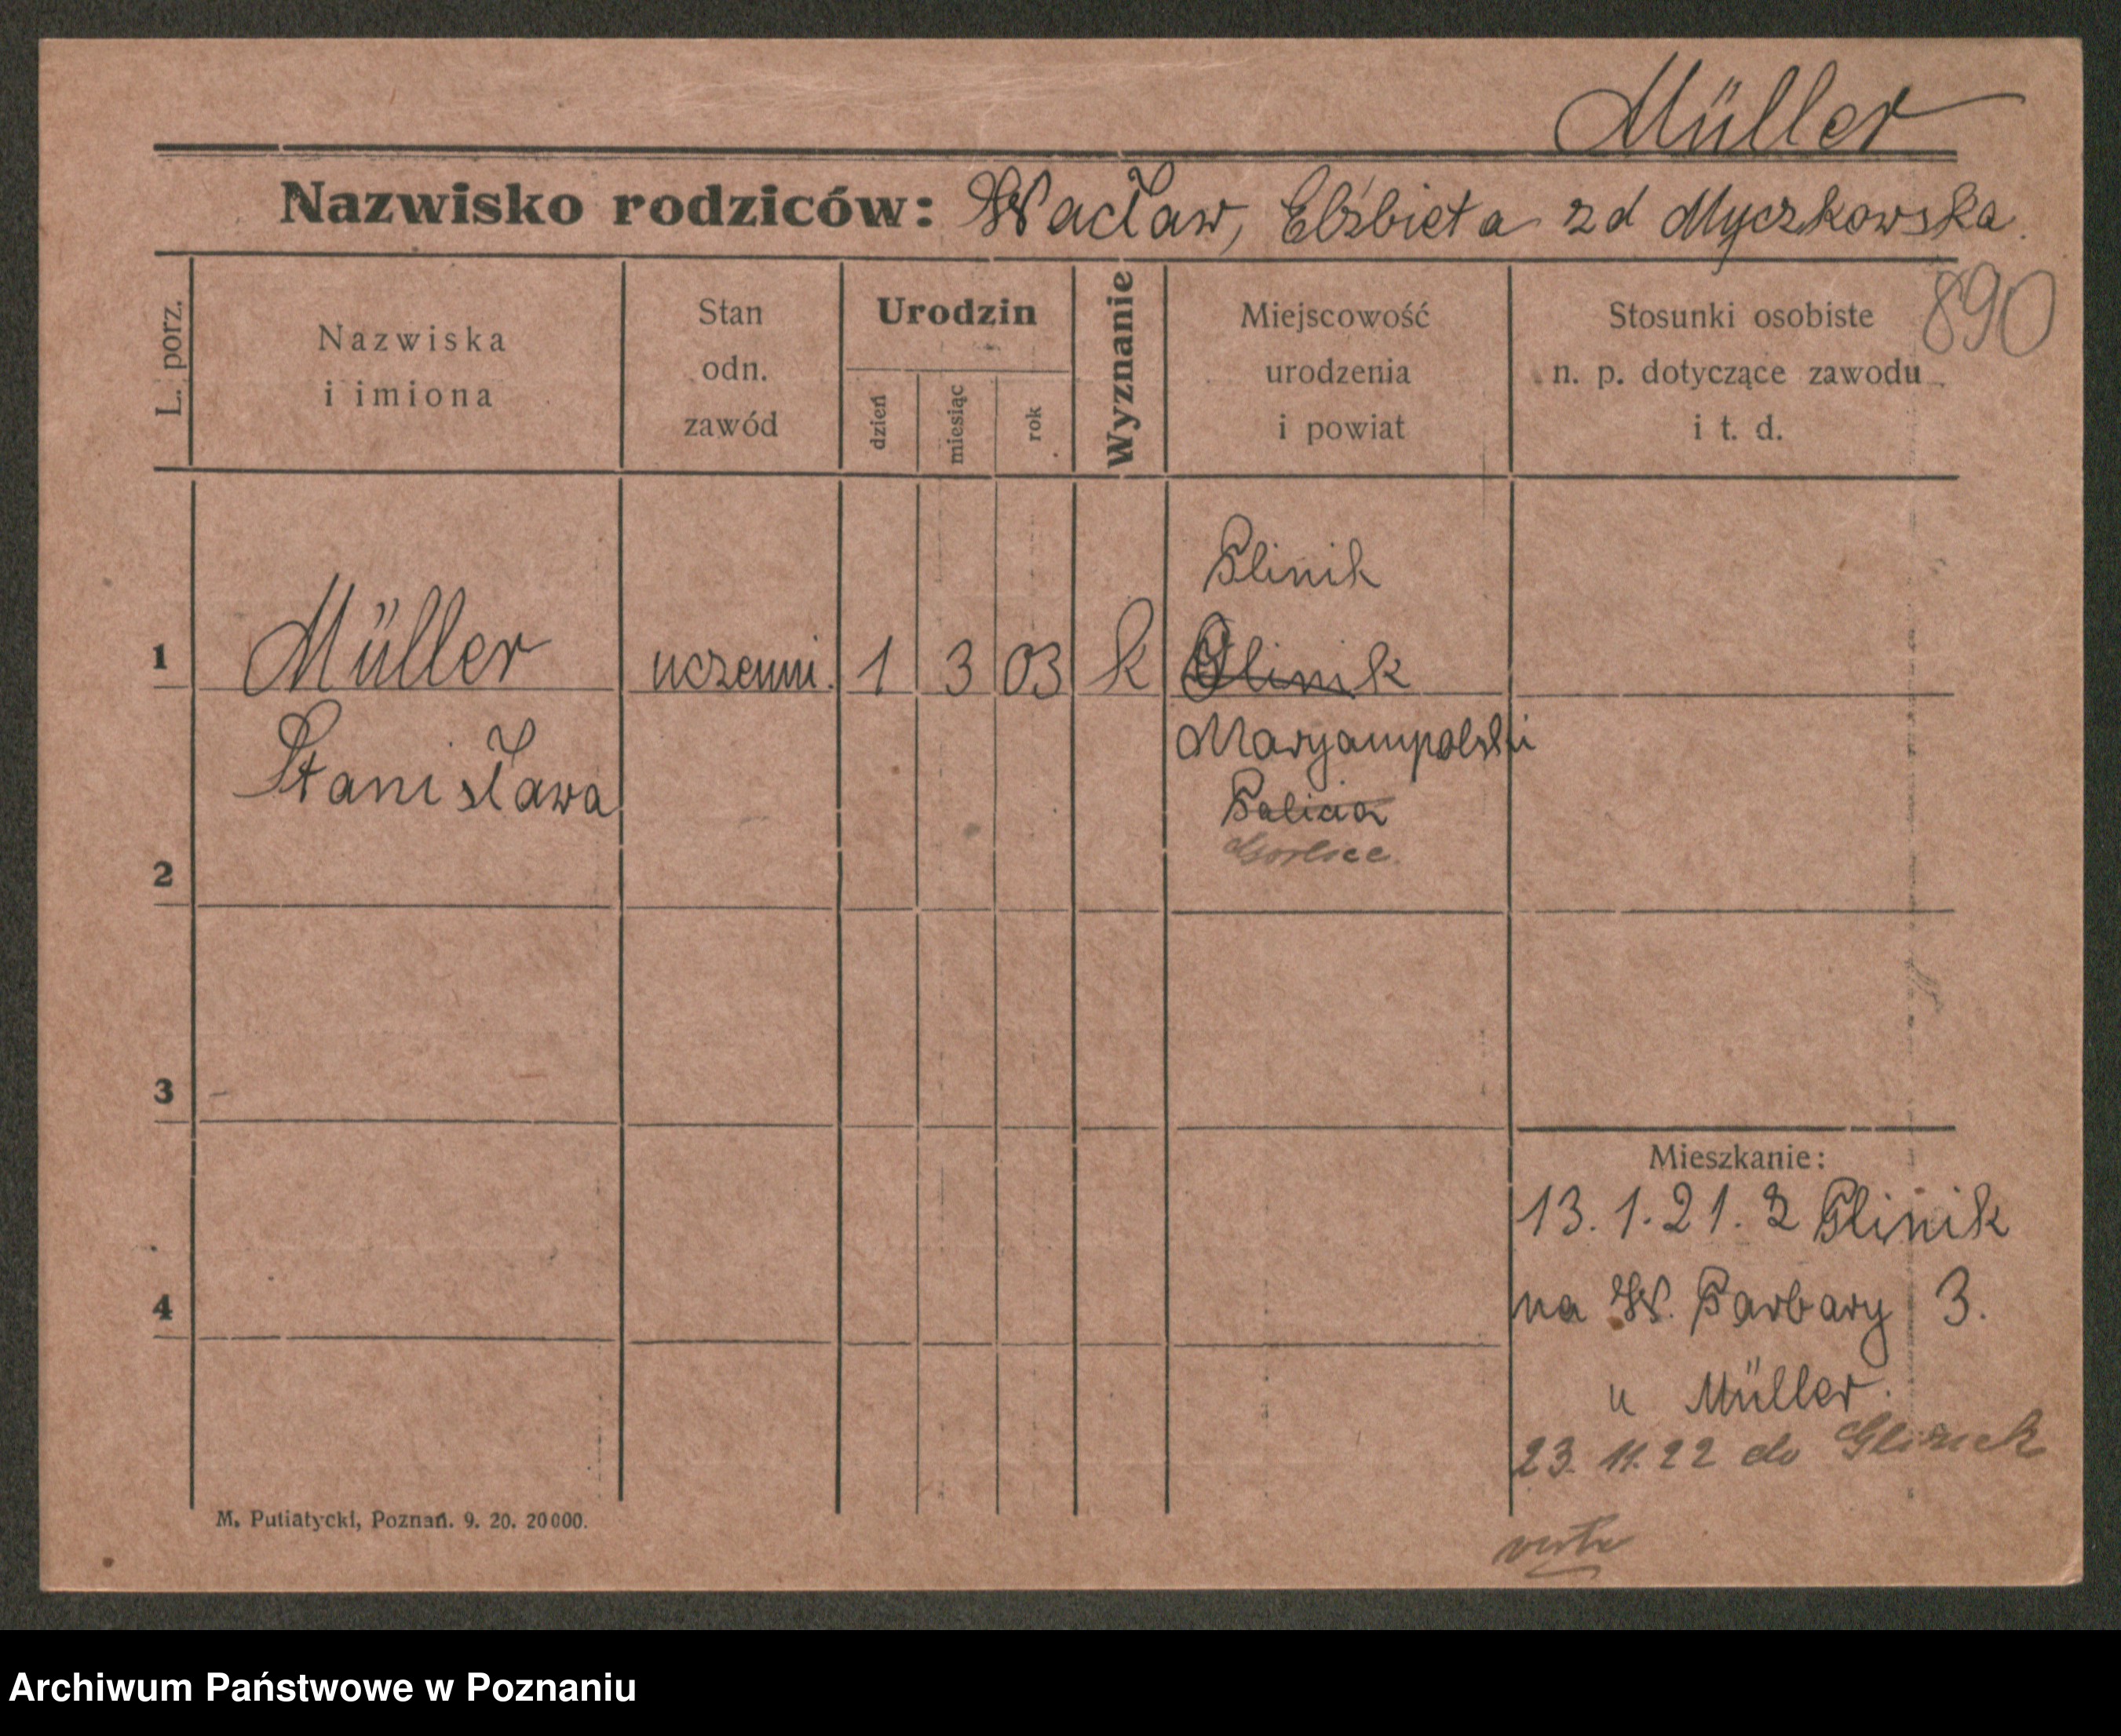 Müller
Nazwisko rodziców: Wacław, Elżbieta zd Myczkowska.
890
L. porz.
Nazwiska
i imiona
Stan
odn.
zawód
Urodzin
dzień
miesiąc
rok
Wyznanie
Miejscowość
urodzenia
i powiat
Stosunki osobiste
n. p. dotyczące zawodu
i t. d.
Glinik
1 Müller uczenni. 1 3 03 k Glinik
Stanisława
Maryampolski
Galicia
Gorlice.
2
3
4
Mieszkanie:
13. 1. 21. z Glinik
na W. Garbary 3.
u Müller.
23. 11. 22 do Glinik
verte
M. Putiatycki, Poznań. 9. 20. 20000.
Archiwum Państwowe w Poznaniu